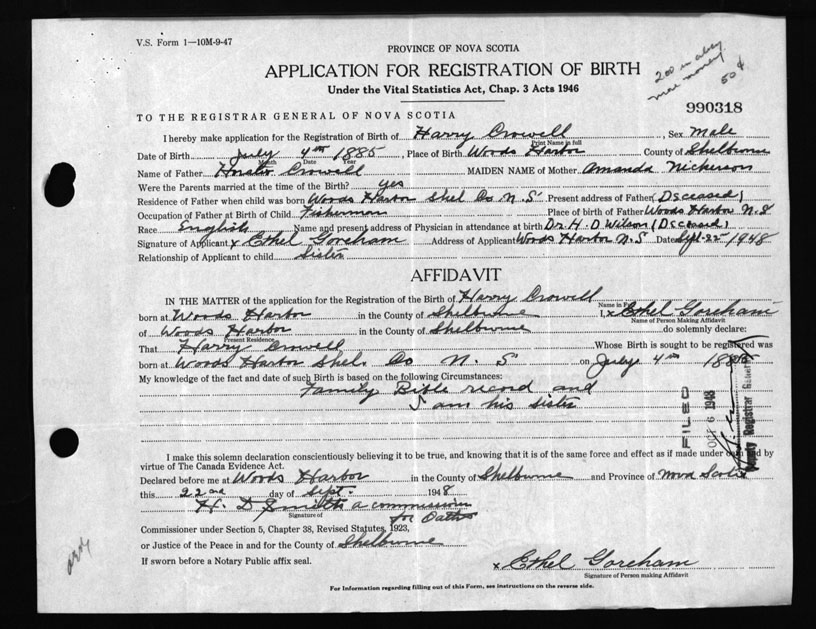 V.S. Form 1—10M-9-47
PROVINCE OF NOVA SCOTIA
APPLICATION FOR REGISTRATION OF BIRTH
Under the Vital Statistics Act, Chap. 3 Acts 1946
50¢
990318
TO THE REGISTRAR GENERAL OF NOVA SCOTIA
I hereby make application for the Registration of Birth of Harry Crowell, Sex Male
Print Name in full
Date of Birth July 4th 1885, Place of Birth Woods Harbor County of Shelburne
Month Date Year
Name of Father Crowell MAIDEN NAME of Mother Amanda Nickerson
Were the Parents married at the time of the Birth? yes
Residence of Father when child was born Woods Harbor Shel Co N.S Present address of Father (Dsceased)
Occupation of Father at Birth of Child Fisherman Place of birth of Father Woods Harbor N.S
Race English Name and present address of Physician in attendance at birth Dr. H. D Wilson (Dsceased)
Signature of Applicant x Ethel Goreham Address of Applicant Woods Harbor N.S Date Sept-22-1948
Relationship of Applicant to child Sister
AFFIDAVIT
IN THE MATTER of the application for the Registration of the Birth of Harry Crowell
Name in Full
born at Woods Harbor in the County of Shelburne I, x Ethel Goreham
Name of Person Making Affidavit
of Woods Harbor in the County of Shelburne do solemnly declare:
Present Residence
That Harry Crowell Whose Birth is sought to be registered was
born at Woods Harbor Shel. Co N. S on July 4th 1885
My knowledge of the fact and date of such Birth is based on the following Circumstances:
Family Bible record and
I am his sister
FILED
OCT 6 1948
County Registrar
I make this solemn declaration conscientiously believing it to be true, and knowing that it is of the same force and effect as if made under oath and by
virtue of The Canada Evidence Act.
Declared before me at Woods Harbor in the County of Shelburne and Province of Nova Scotia
this 22nd day of Sept. 1948
H. D a commissioner
Signature of
for Oaths
Commissioner under Section 5, Chapter 38, Revised Statutes, 1923,
or Justice of the Peace in and for the County of Shelburne
If sworn before a Notary Public affix seal.
x Ethel Goreham
Signature of Person making Affidavit
For Information regarding filling out of this Form, see instructions on the reverse side.